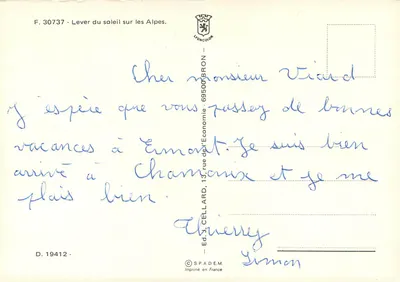 F. 30737 - Lever du soleil sur les Alpes.
LYONCOLOR
Cher monsieur Viard
J'espère que vous passez de bonnes
vacances à Ermont. Je suis bien
arrivé à Chamonix et je me
plais bien.
Thierry
Simon
Ed. J. CELLARD, rue de l'Economie 69500 BRON -
D. 19412 -
© SPADEM
Imprimé en France